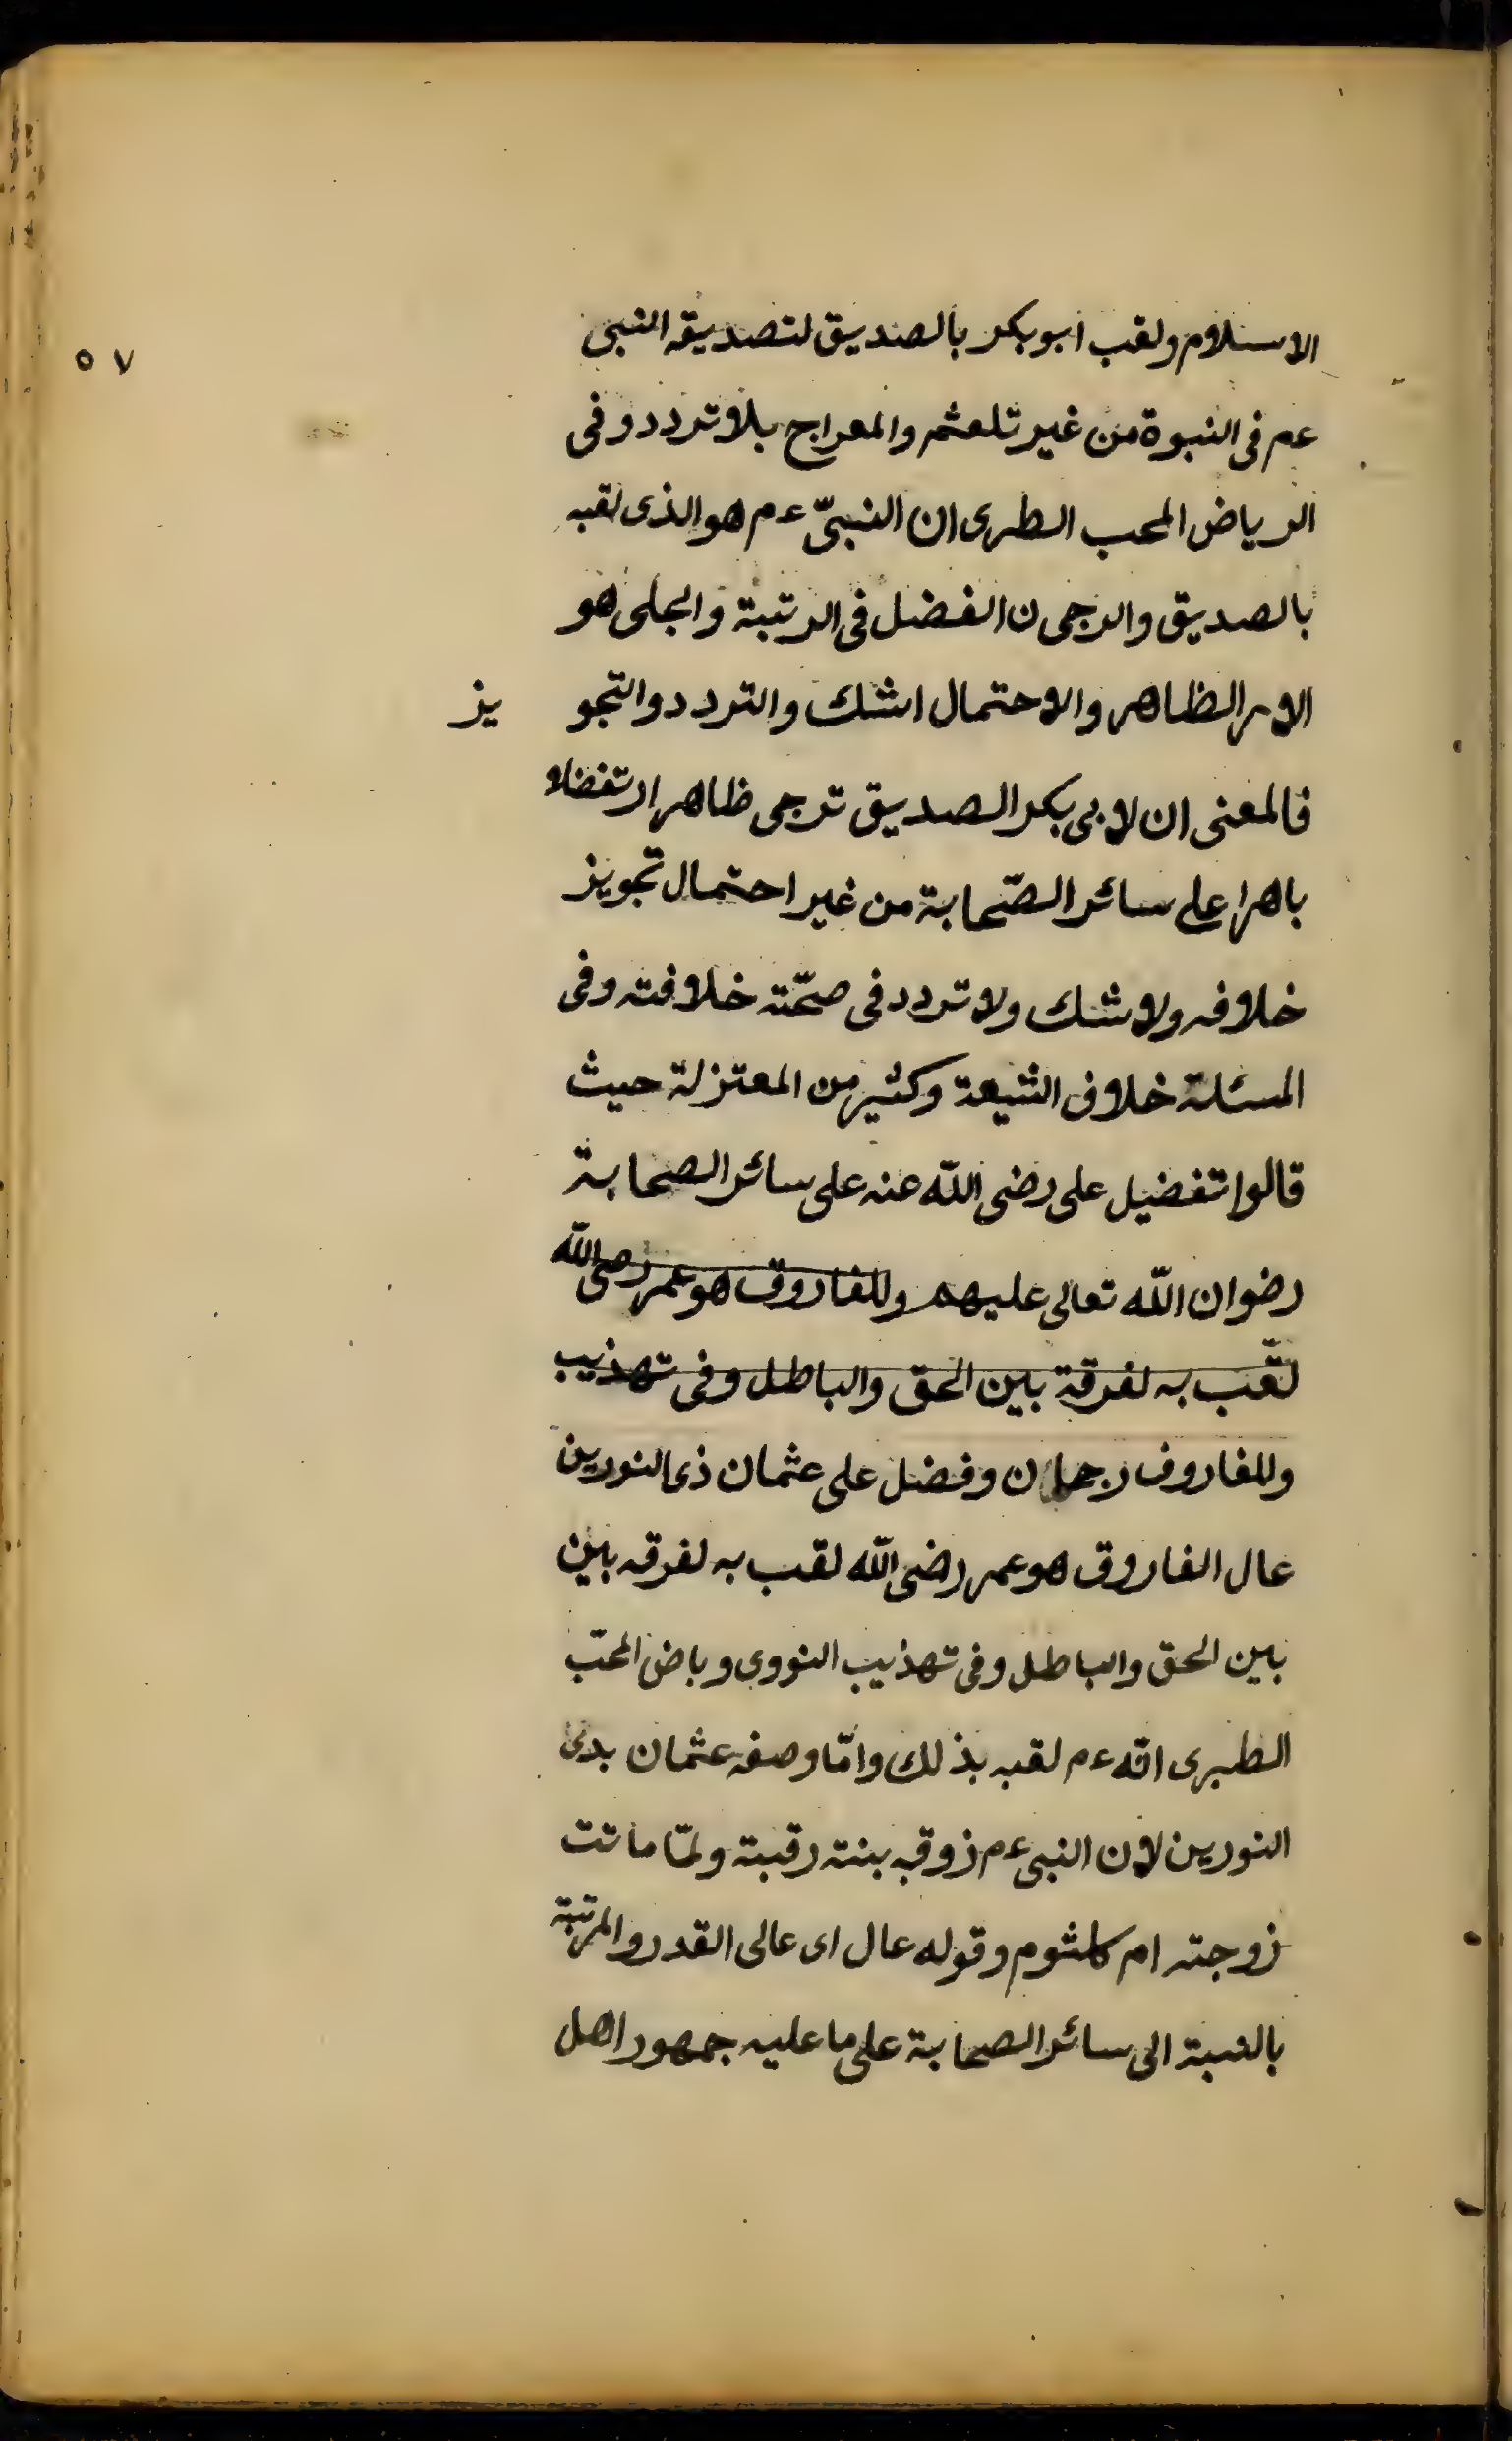 ٥٧
الاسلام ولقب ابو بكر بالصديق لتصديقه النبي
عم فى النبوة من غير تلعثم والمعراج بلا تردد وفى
الرياض المحب الطبرى ان النبىّ عم هو الذى لقبه
بالصديق والرجى ن الفضل فى الرتبة والجلى هو
الامر الظاهر والاحتمال اشك والتردد والتجو يز
فالمعنى ان لابى بكر الصديق ترجى ظاهرا وتفضلا
باهرا على سائر الصّحابة من غير احتمال تجويز
خلافه ولا شك ولا تردد فى صحّته خلافته وفى
المسئلة خلاف الشيعة وكثير من المعتزلة حيث
قالوا تفضيل على رضى الله عنه على سائر الصحابة
رضوان الله تعالى عليهم وللفاروق هو عمر رضى الله
لقّب به لفرقة بين الحق والباطل وفى تهذيب
وللفاروف رجحان وفضل على عثمان ذى النورين
عال الفاروق هو عمر رضى الله لقب به لفرقه بين
بين الحق والباطل وفى تهذيب النووى وياض المحبّ
الطبرى انّه عم لقبه بذلك وامّا وصفه عثمان بدى
النورين لان النبى عم زوقبه بنته رقبته ولمّا ماتت
زوجته ام كلثوم وقوله عال اى عالى القدر والمرتبة
بالنسبة الى سائر الصحابة على ما عليه جمهور اهل